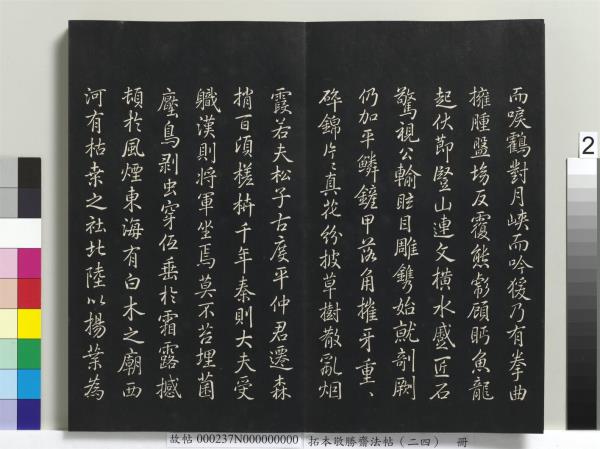 而唳鸖對月峽而吟猨乃有拳曲
擁腫盤坳反覆熊彪顧眄魚龍
起伏節豎山連文橫水蹙匠石
驚視公輸眩目雕鐫始就剞劂
仍加平鱗鏟甲落角摧牙重〻
碎錦片〻真花紛披草樹散亂烟
霞若夫松子古度平仲君遷森
捎百頃槎枿千年秦則大夫受
職漢則將軍坐焉莫不苔埋菌
壓鳥剥虫穿伍垂於霜露撼
頓於風煙東海有白木之廟西
河有枯桒之社北陸以楊葉為
故帖 000237N000000000 拓本敬勝齋法帖(二四) 冊
2